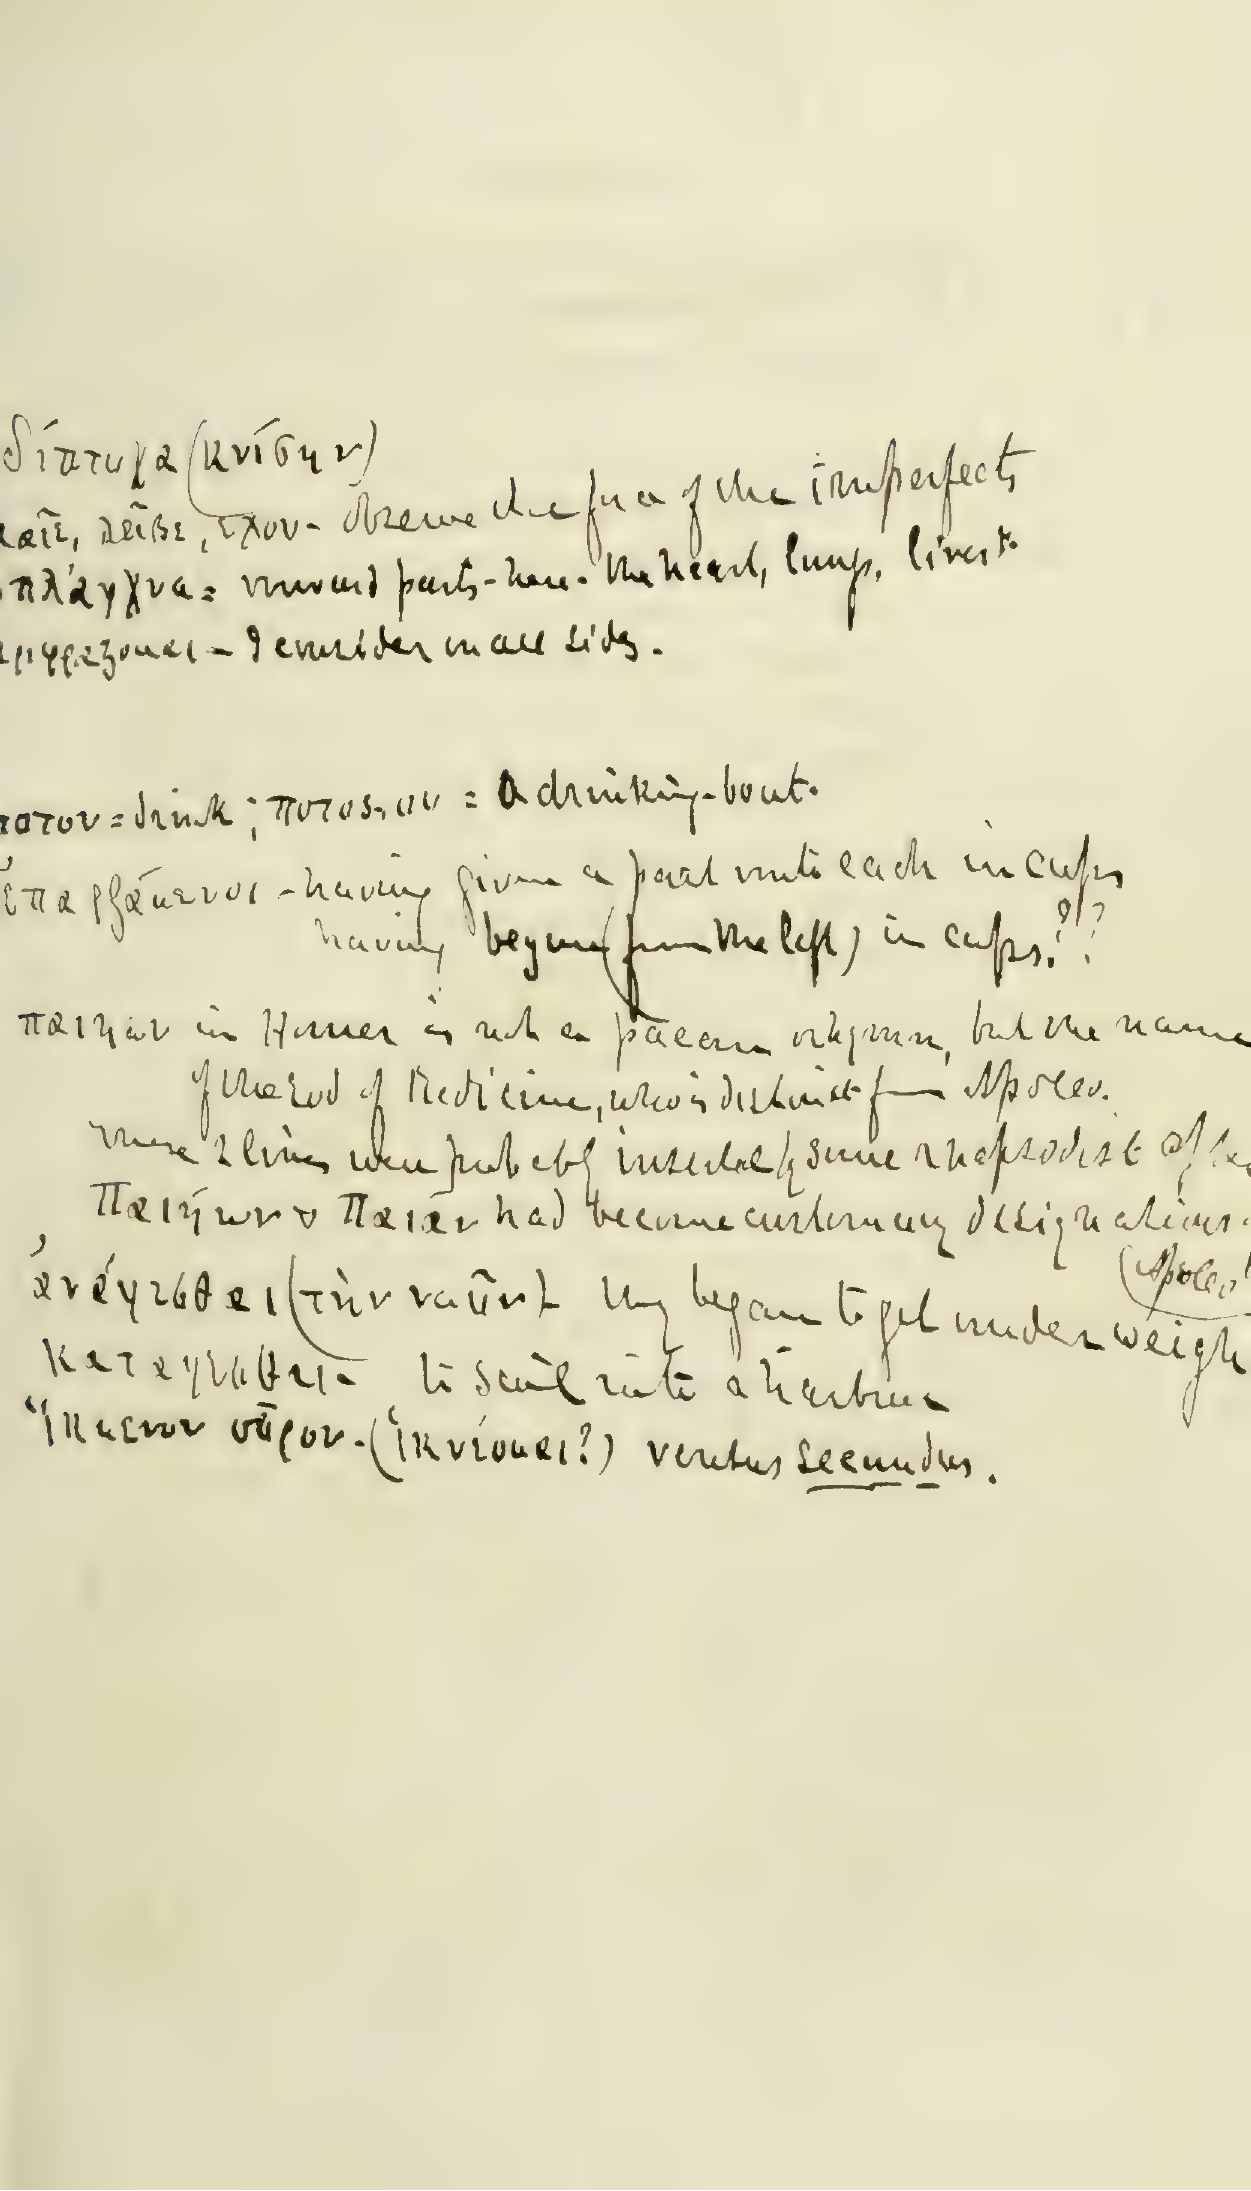 δίπτυχα (κνίσην)
καῖε, λεῖβε, ἔχον - Observe the force of the imperfects
σπλάγχνα = inward parts - here - the heart, lungs, liver &c.
αμφραζομαι - I consider on all sides.
ποτον = drink; ποτος, ου = a drinking-bout.
ἐπαρξάμενοι - having given a part unto each in cups
having begun (from the left) in cups??
παιηων in Homer is not a paean or hymn, but the name
of the God of Medicine, who is distinct from Apollo.
These 2 lines were probably inserted by some rhapsodist after
Παιήων & Παιάν had become customary designations.
(Apollo)
ἀνάγεσθαι (τὴν ναῦν) - they began to get under weigh
καταγεσθαι - to sail into a harbour
ἵκμενον οὖρον - (ἱκνέομαι?) ventus secundus.